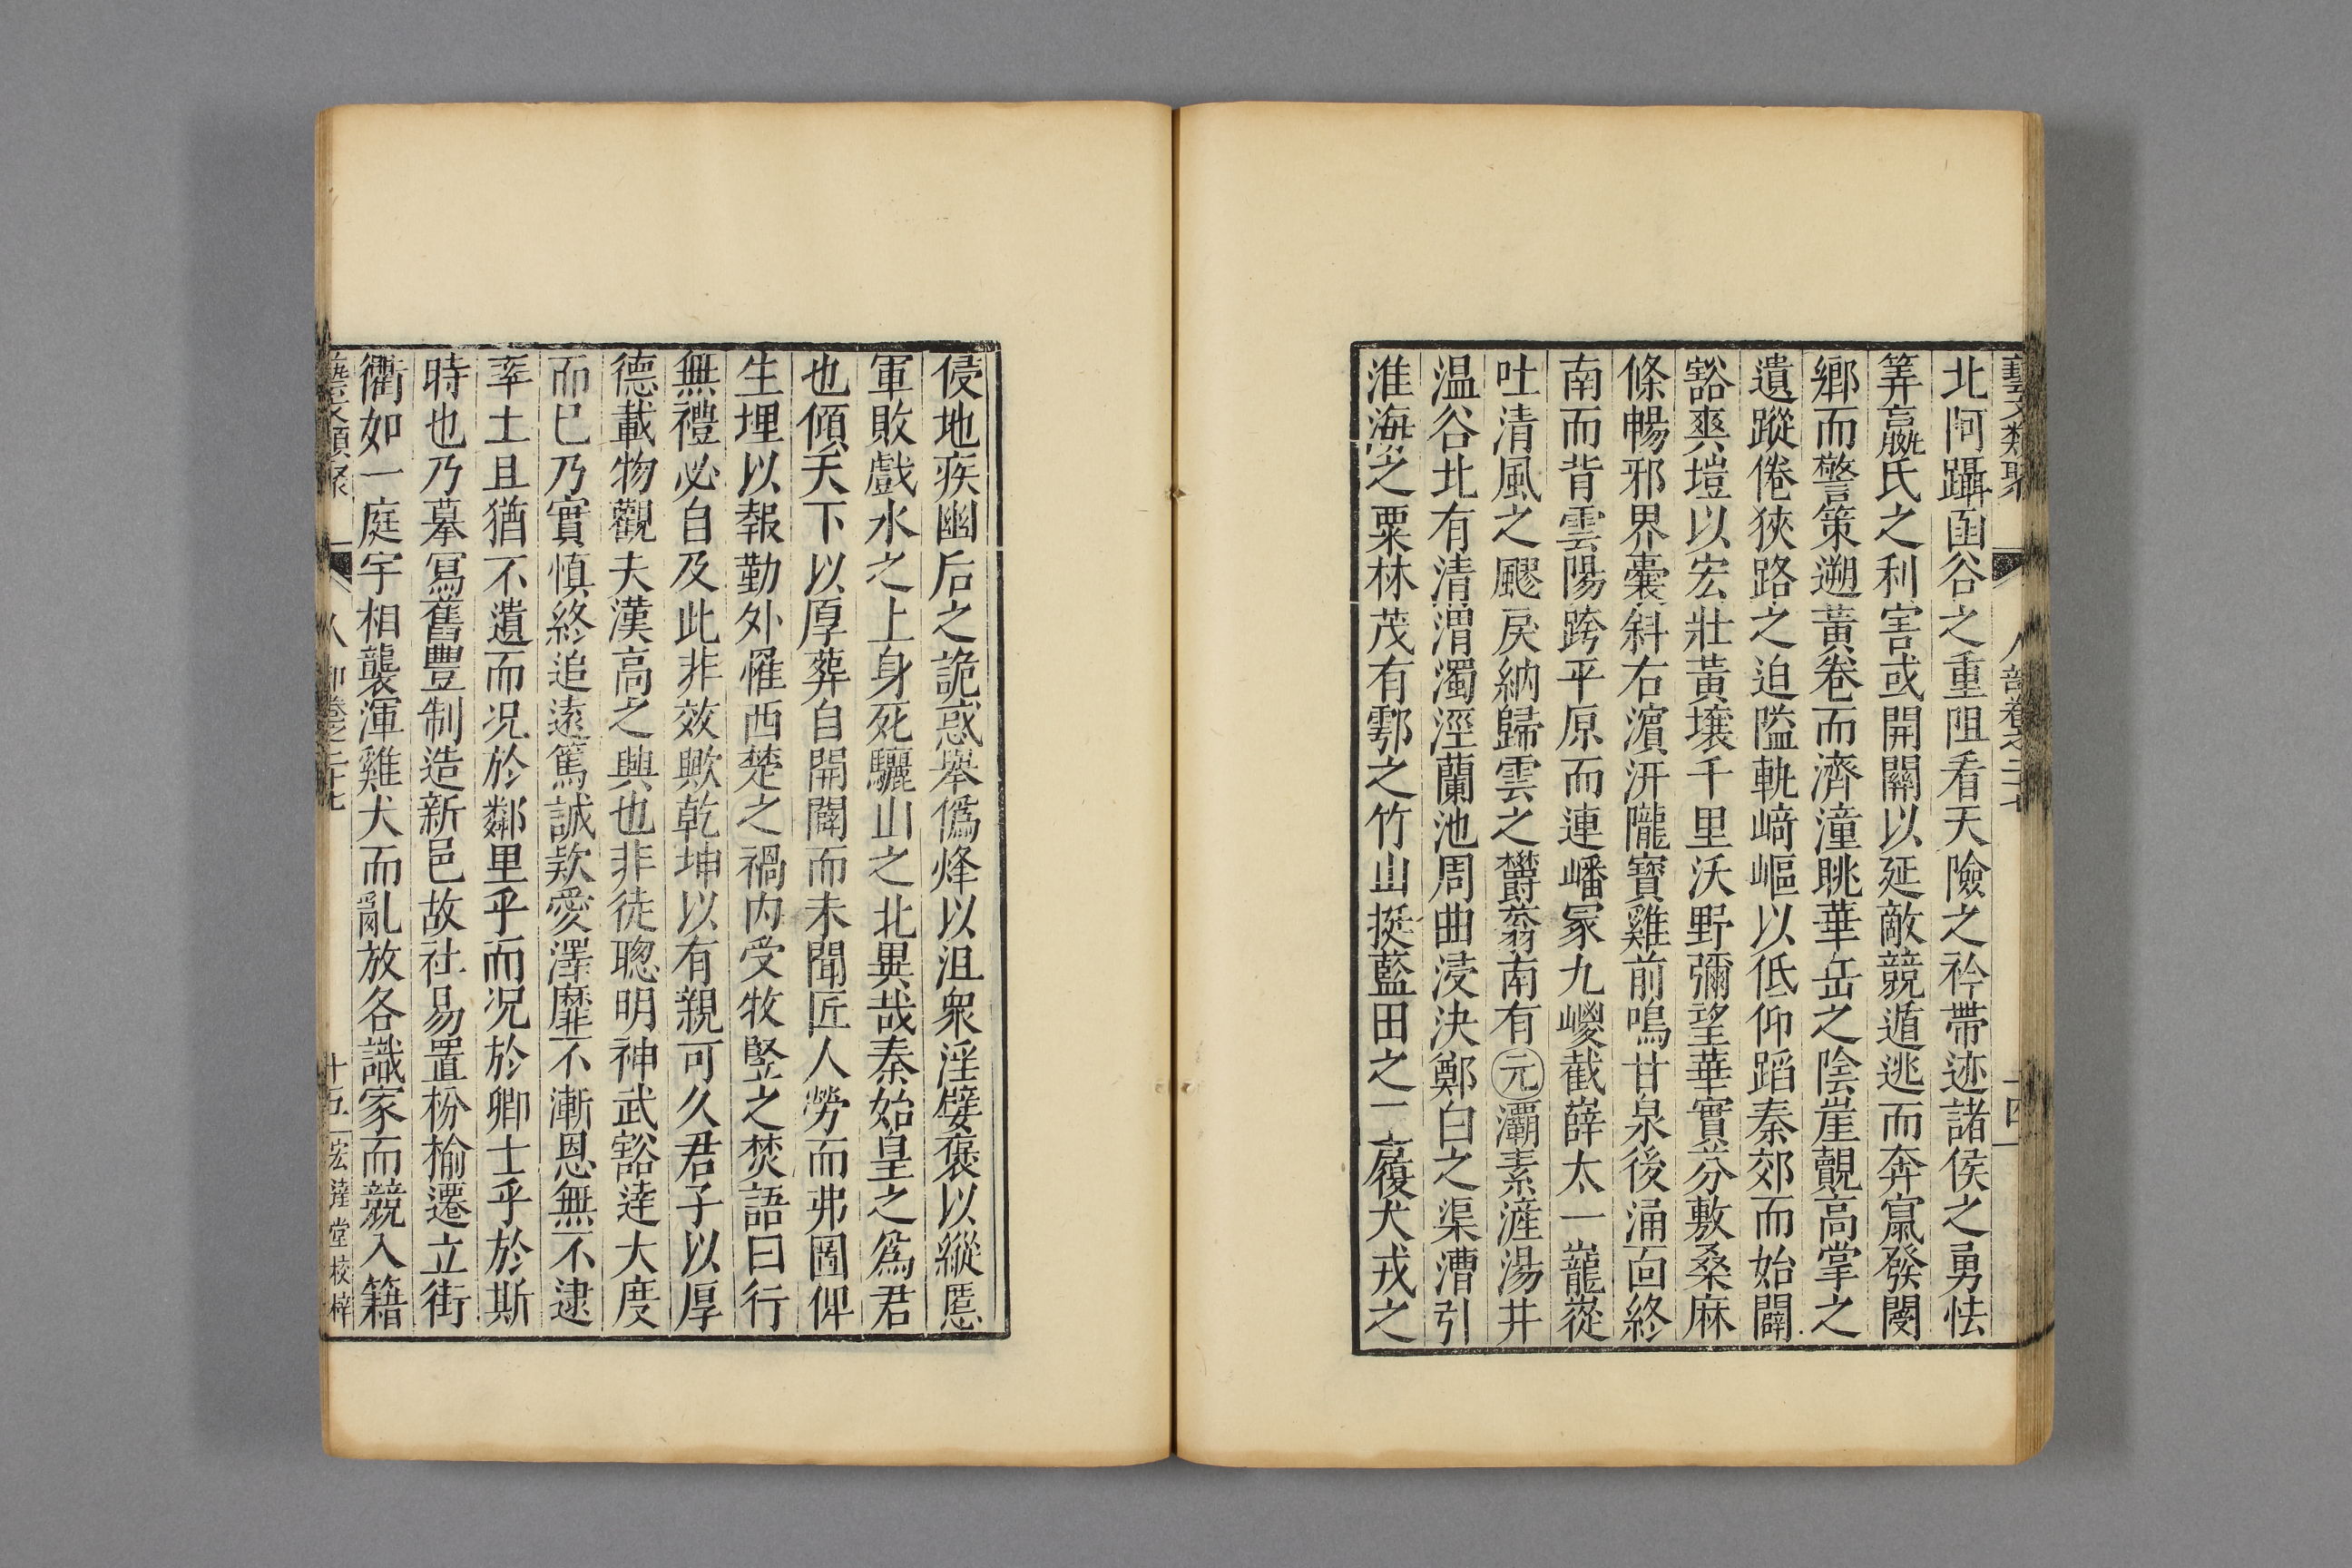 藝文類聚 人部卷之二十七 十四
北阿躡函谷之重阻看天險之衿帶迹諸侯之勇怯
筭嬴氏之利害或開關以延敵競遁逃而奔竄發閿
鄉而警策遡黃卷而濟潼眺華岳之陰崖覿高掌之
遺蹤倦狹路之迫隘軌﨑嶇以低仰蹈秦郊而始闢
豁爽塏以宏壯黃壤千里沃野彌望華實芬敷桑麻
條暢邪界褱斜右濵汧隴寶雞前鳴甘泉後涌面終
南而背雲陽跨平原而連嶓冢九嵕截嶭太一巃嵸
吐清風之飂戾納歸雲之欝蓊南有元灞素滻湯井
温谷北有清渭濁涇蘭池周曲浸決鄭白之渠漕引
淮海之粟林茂有鄠之竹山挺藍田之玉履犬戎之
侵地疾幽后之詭惑舉僞烽以沮衆淫嬖褒以縱慝
軍敗戲水之上身死驪山之北異哉秦始皇之爲君
也傾天下以厚葬自開闢而未聞匠人勞而弗圖俾
生埋以報勤外罹西楚之禍內受牧竪之焚語曰行
無禮必自及此非效歟乾坤以有親可久君子以厚
德載物觀夫漢高之興也非徒聦明神武豁逹大度
而巳乃實慎終追遠篤誠欵愛澤靡不漸恩無不逮
率土且猶不遺而況於鄰里乎而況於卿士乎於斯
時也乃摹寫舊豐制造新邑故社易置枌榆遷立街
衢如一庭宇相襲渾雞犬而亂放各識家而競入籍
藝文類聚 人部卷之二十七 十五 宏逹堂校梓